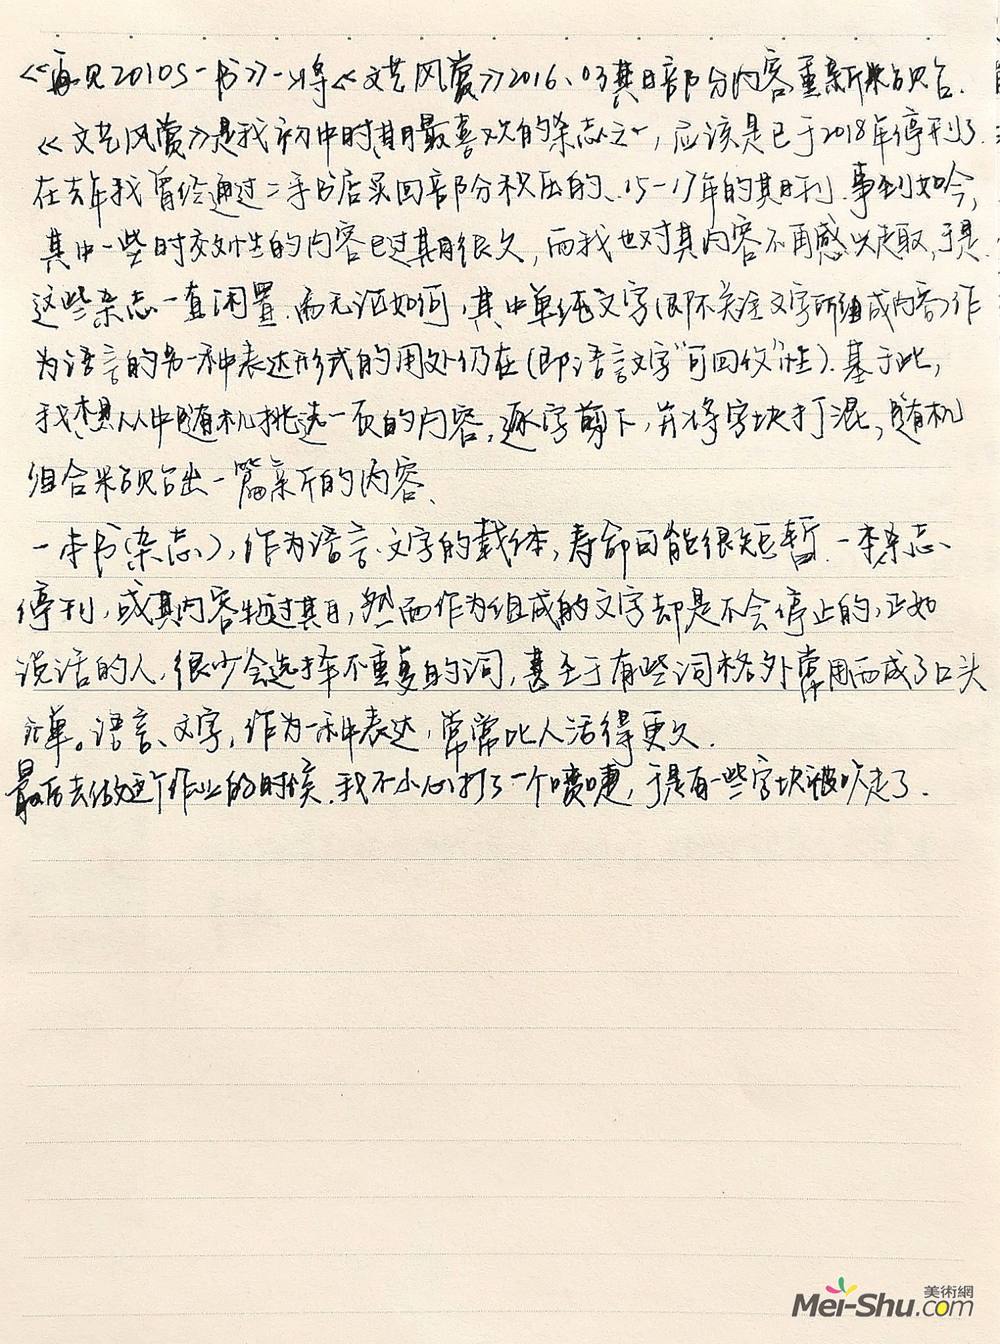 《再见2010S-书》-将《文艺风赏》2016、03期部分内容重新粘贴.
《文艺风赏》是我初中时期最喜欢的杂志之一,应该是已于2018年停刊了.
在去年我曾经通过二手书店买回部分积压的、15-17年的期刊.事到如今,
其中一些时效性的内容已过期很久,而我也对其内容不再感兴趣,于是
这些杂志一直闲置.而无论如何,其中单纯文字(即不关注文字所组成内容)作
为语言的另一种表达形式的用处仍在(即语言文字“可回收”性).基于此,
我想从中随机挑选一页的内容,逐字剪下,并将字块打混,随机
组合粘贴出一篇新的内容、
一本书(杂志),作为语言、文字的载体,寿命可能很短暂.一本杂志、
停刊,或其内容过期,然而作为组成的文字却是不会停止的,正如
说话的人,很少会选择不重复的词,甚至于有些词格外常用而成了口头
禅。语言、文字,作为一种表达,常常比人活得更久.
最后去做这个作业的时候.我不小心打了一个喷嚏,于是有一些字块被吹走了.
美術網
Mei-Shu.com